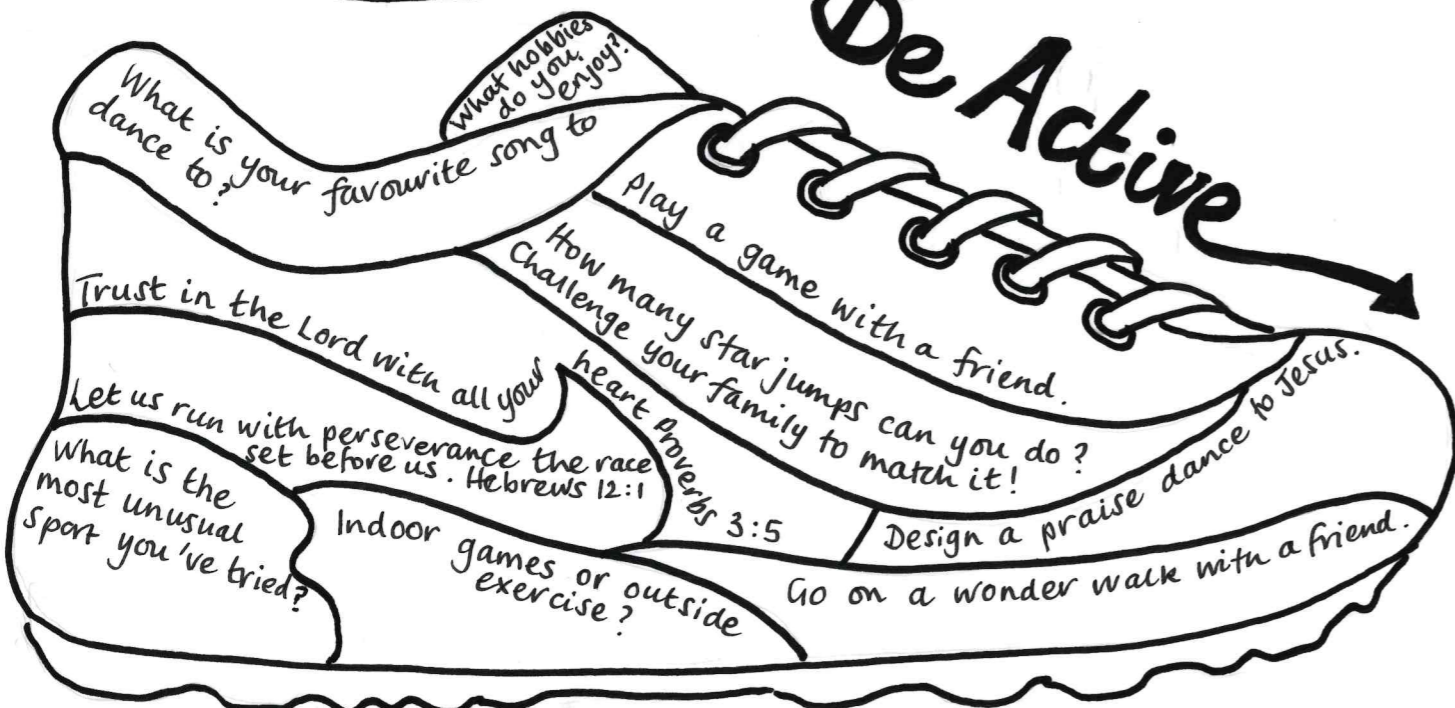 Be Active
What hobbies
do you
enjoy?
What is your favourite song to
dance to?
Play a game with a friend.
How many star jumps can you do?
Challenge your family to match it!
Trust in the Lord with all your heart Proverbs 3:5
Let us run with perseverance the race
set before us. Hebrews 12:1
Design a praise dance to Jesus.
What is the
most unusual
sport you've tried?
Indoor games or outside
exercise?
Go on a wonder walk with a friend.